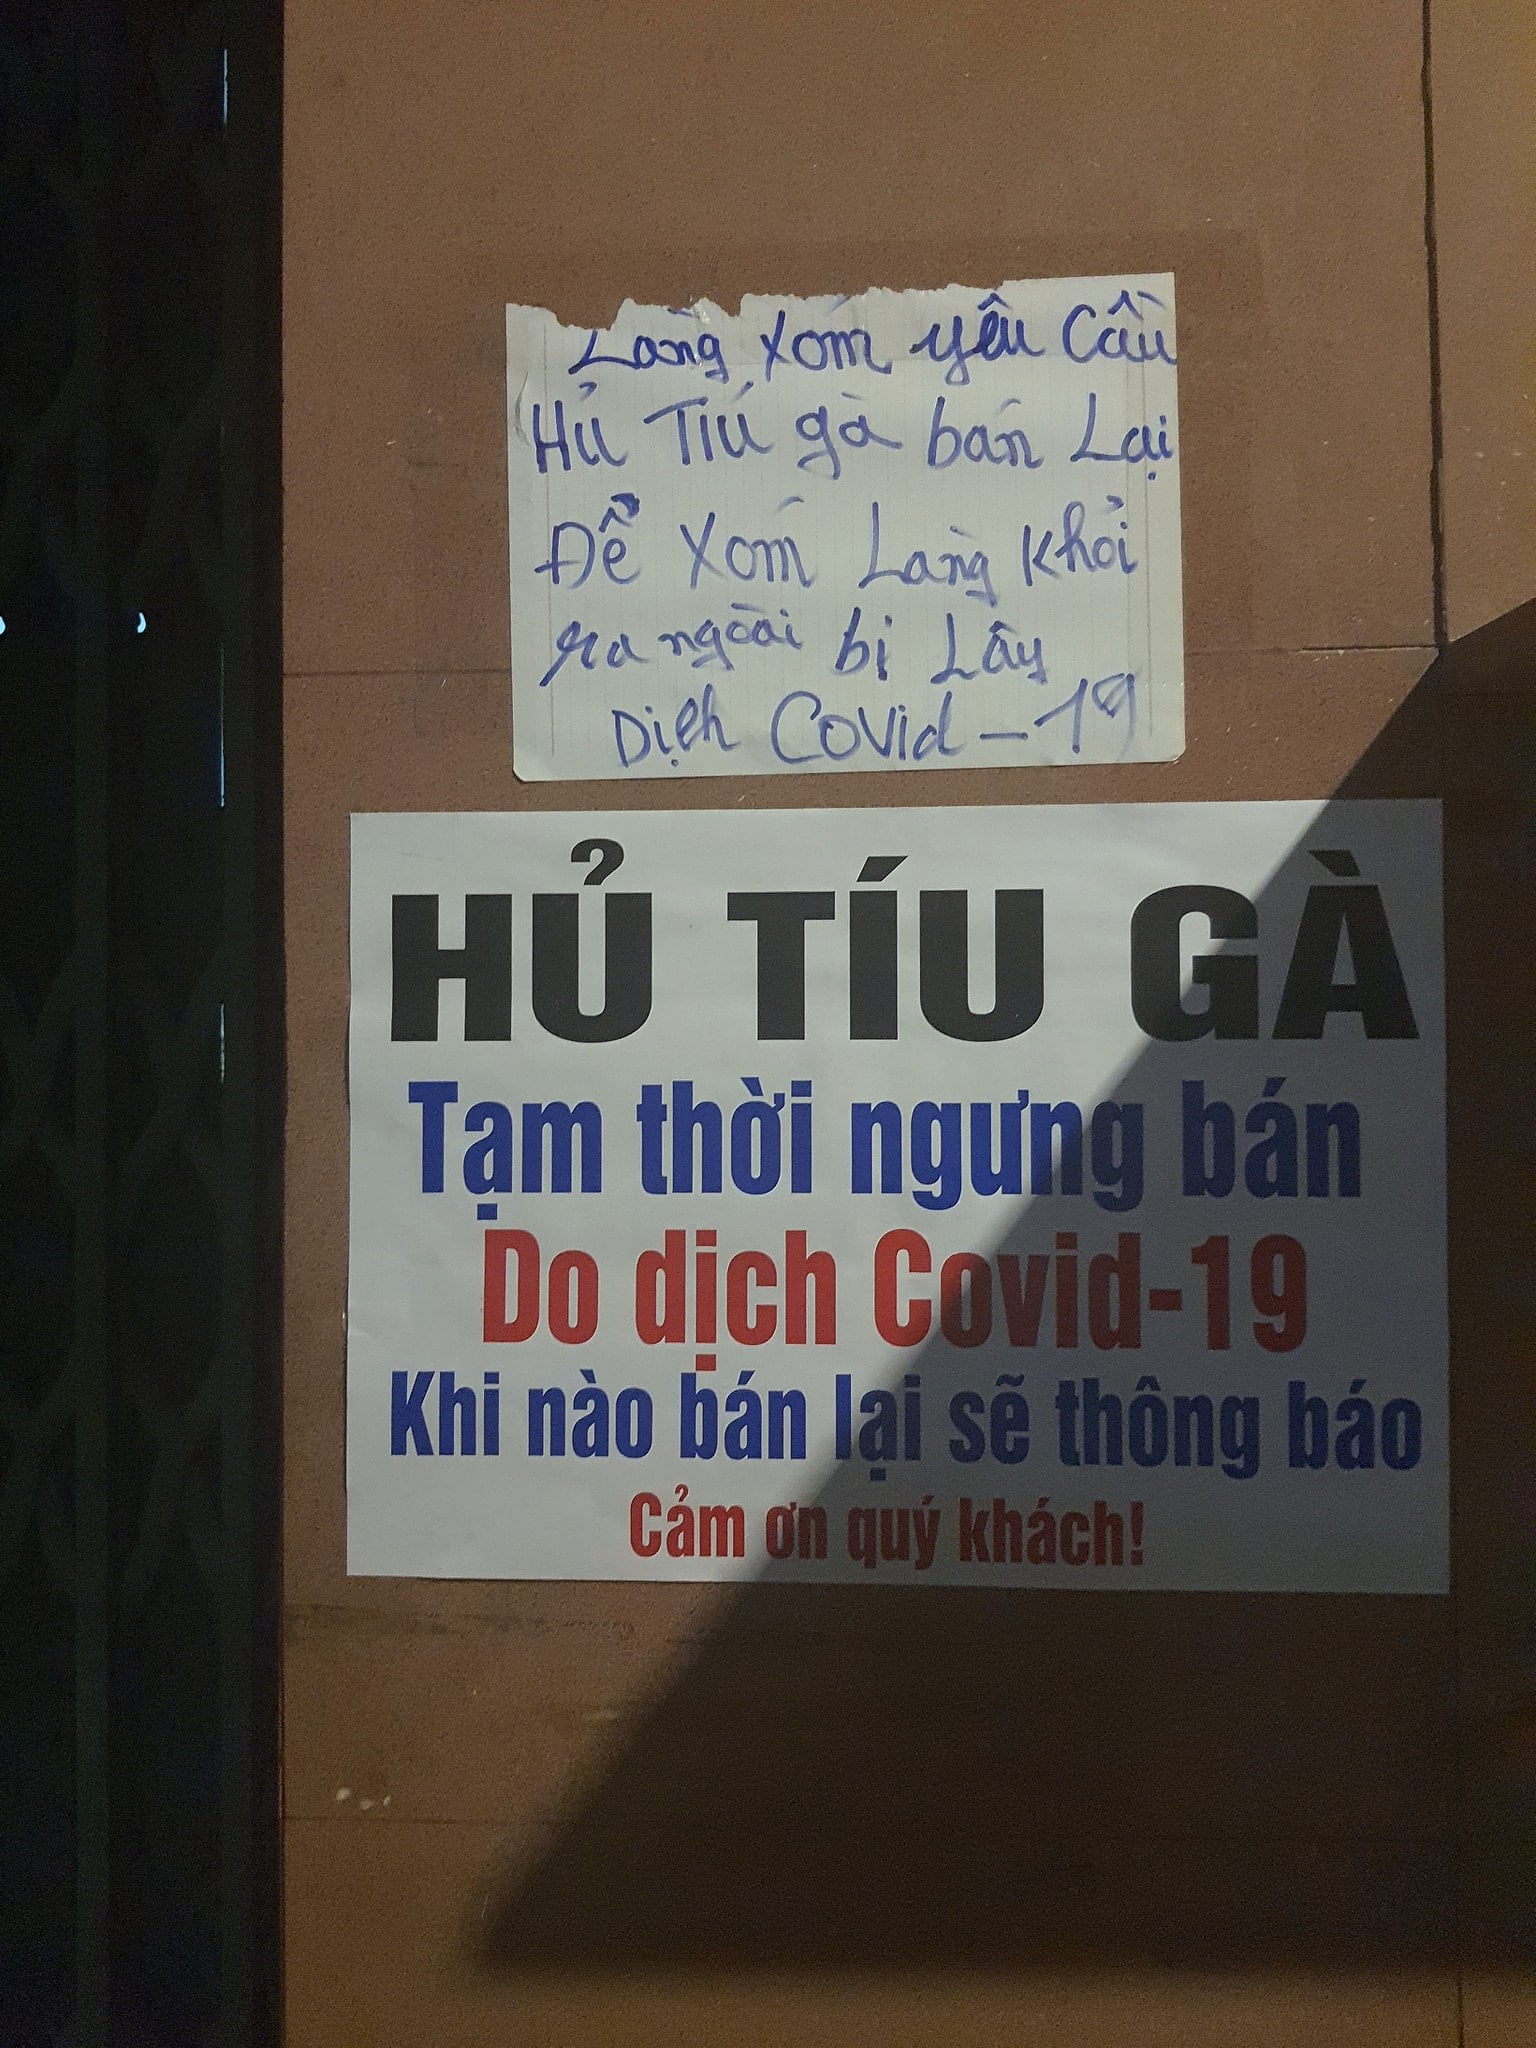 Làng xóm yêu cầu
Hủ Tíu gà bán Lại
Để xóm Làng khỏi
ra ngoài bị Lây
Dịch Covid-19
HỦ TÍU GÀ
Tạm thời ngưng bán
Do dịch Covid-19
Khi nào bán lại sẽ thông báo
Cảm ơn quý khách!